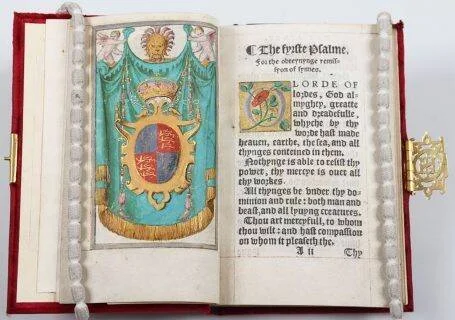 ¶ The fyrste Psalme.
For the obteynynge remis-
syon of synnes.
O LORDE OF
lordes, God al-
myghty, greatte
and dreadefulle,
whyche by thy
worde hast made
heauen, earthe, the sea, and all
thynges conteined in them.
Nothynge is able to resist thy
power, thy mercye is ouer all
thy workes.
All thynges be vnder thy do-
minion and rule: both man and
beast, and all lyuyng creatures.
Thou art mercyfull, to whom
thou wilt: and hast compassion
on whom it pleaseth the.
A ii Thy